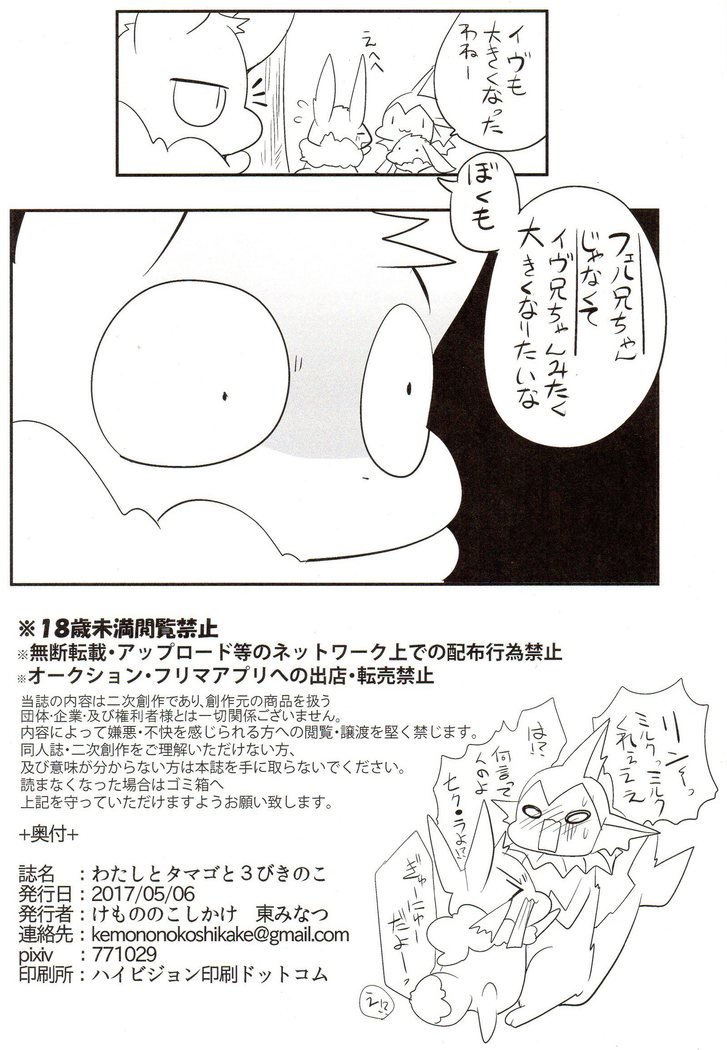 イヴも
大きくなった
わねー
えへへ
ぼくも
フェル兄ちゃん
じゃなくて
イヴ兄ちゃんみたく
大きくなりたいな
※18歳未満閲覧禁止
※無断転載・アップロード等のネットワーク上での配布行為禁止
※オークション・フリマアプリへの出店・転売禁止
当誌の内容は二次創作であり、創作元の商品を扱う
団体・企業・及び権利者様とは一切関係ございません。
内容によって嫌悪・不快を感じられる方への閲覧・譲渡を堅く禁じます。
同人誌・二次創作をご理解いただけない方、
及び意味が分からない方は本誌を手に取らないでください。
読まなくなった場合はゴミ箱へ
上記を守っていただけますようお願い致します。
+奥付+
誌名　：わたしとタマゴと３びきのこ
発行日：2017/05/06
発行者：けもののこしかけ　東みなつ
連絡先：kemononokoshikake@gmail.com
pixiv　：771029
印刷所：ハイビジョン印刷ドットコム
リンーっ
ミルクっミルク
くれぇええ
は!?
何言って
んのよ
モク・ラよ!?
ぎゅーにゅー
だよー
え!?